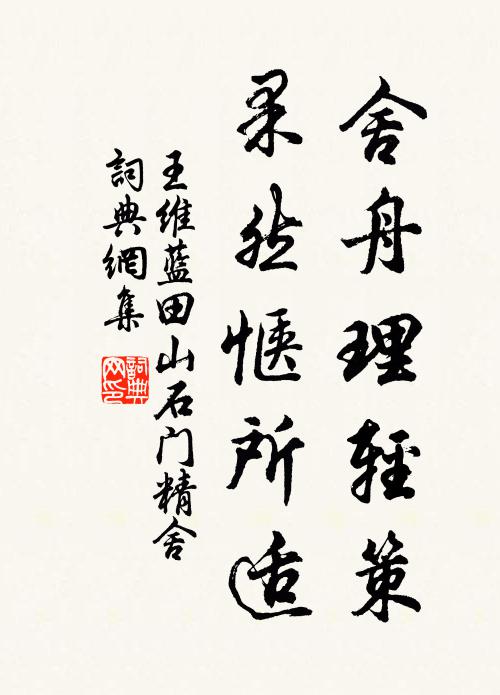 舍舟理輕策
果然愜所适
王维蓝田山石门精舍
詞典網集
詞典网印